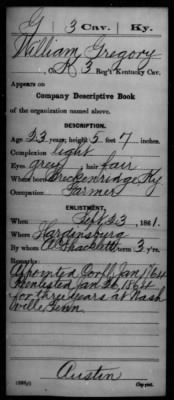 G | 3 Cav. | Ky.
William Gregory
Co. K, 3 Reg't Kentucky Cav.
Appears on
Company Descriptive Book
of the organization named above.
DESCRIPTION.
Age 23 years; height 5 feet 7 inches.
Complexion light
Eyes grey; hair fair
Where born Breckenridge, Ky
Occupation Farmer
ENLISTMENT.
When Sept 23, 1861.
Where Hardinsburg
By whom Shacklett term 3 y'rs.
Remarks:
Appointed Corpl Jan 1/64
Reenlisted Jan 26, 1864
for three years at Nash
ville Tenn
Austin
Copyist.